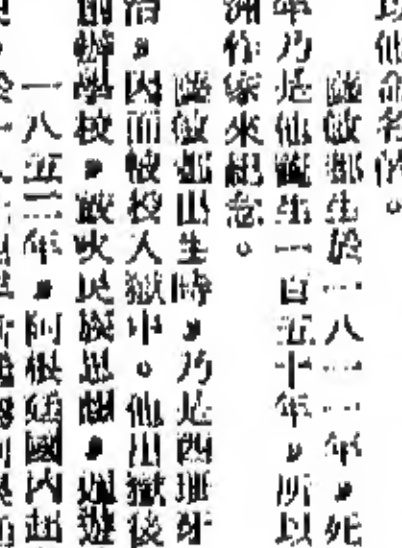 以他命名的。
薩敏都生於一八一一年，死
年乃是他誕生一百五十年，所以
洲作家來紀念。
薩敏都出生時，乃是西班牙
治，因而被投入獄中。他出獄後
創辦學校，民族思潮，遊
一八五二年，阿根廷國內起